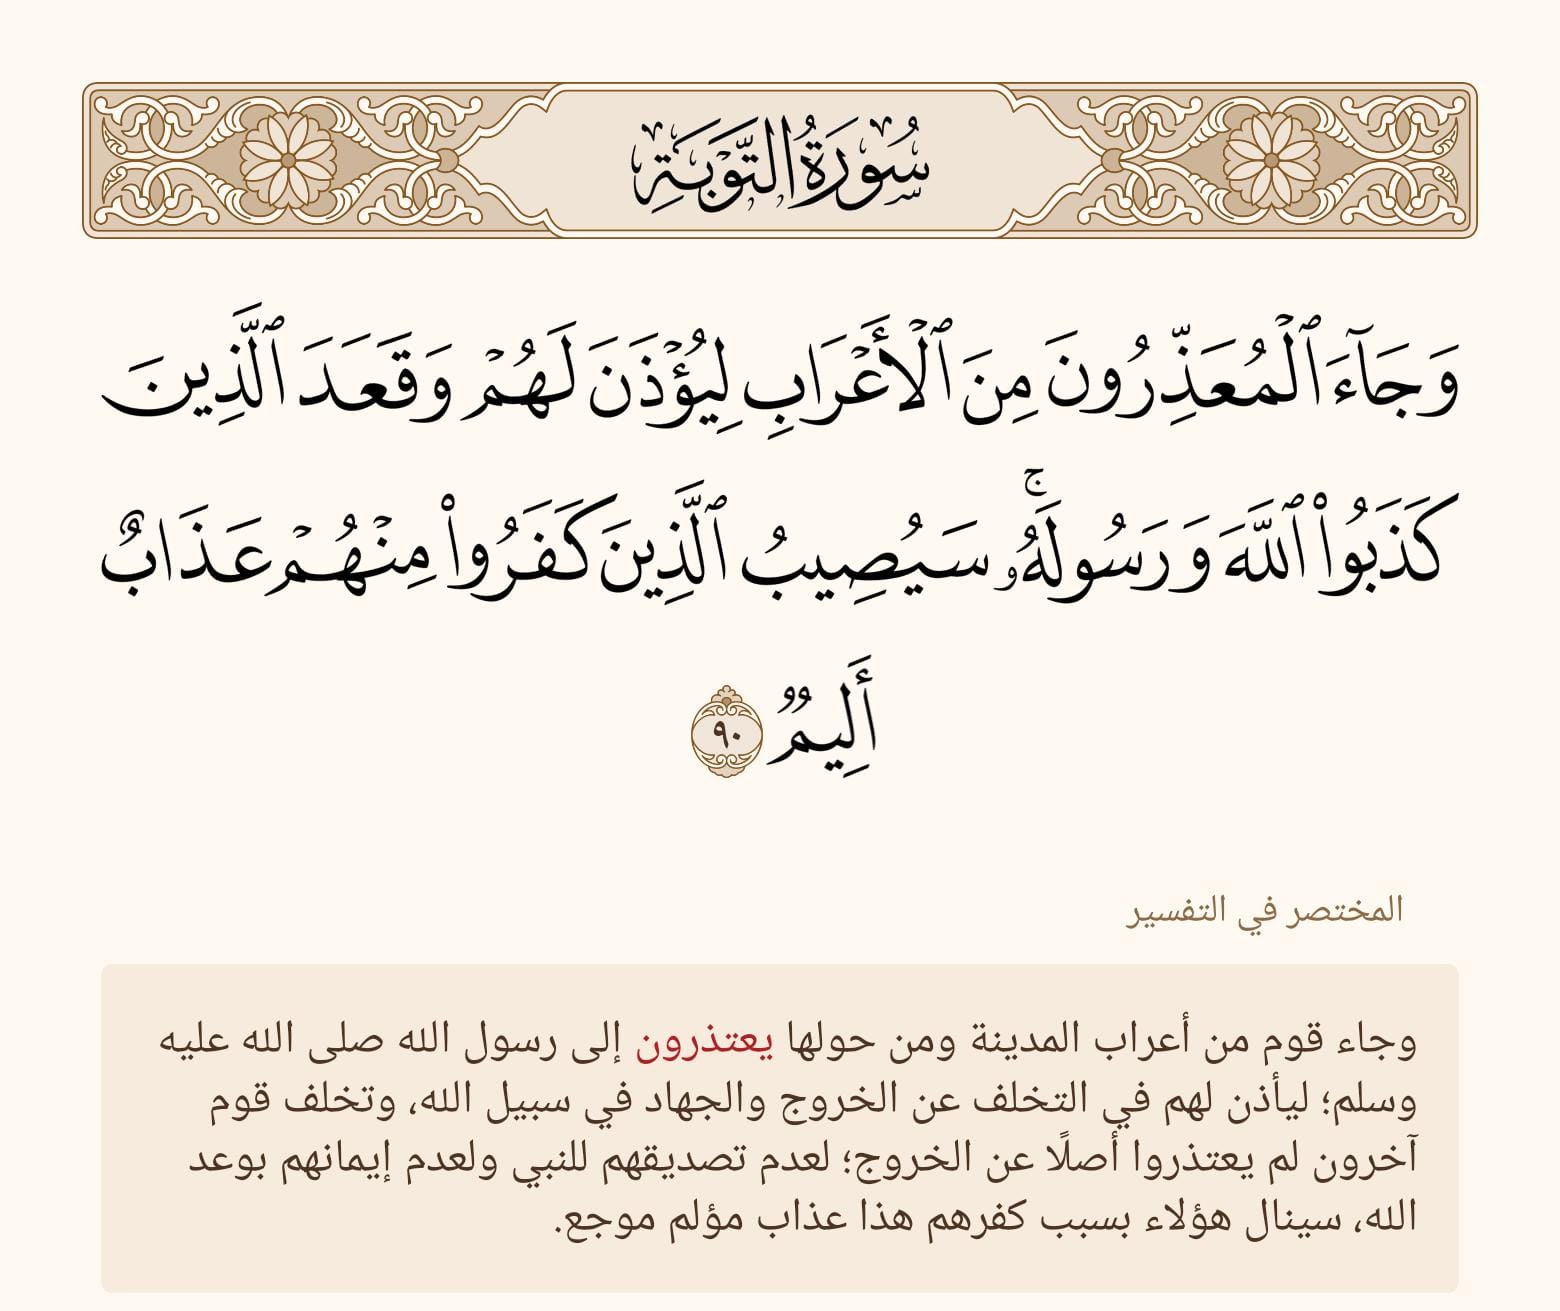 سُورَةُ التَّوۡبَةِ
وَجَآءَ ٱلۡمُعَذِّرُونَ مِنَ ٱلۡأَعۡرَابِ لِيُؤۡذَنَ لَهُمۡ وَقَعَدَ ٱلَّذِينَ
كَذَبُواْ ٱللَّهَ وَرَسُولَهُۥۚ سَيُصِيبُ ٱلَّذِينَ كَفَرُواْ مِنۡهُمۡ عَذَابٌ
أَلِيمٞ ٩٠
المختصر في التفسير
وجاء قوم من أعراب المدينة ومن حولها يعتذرون إلى رسول الله صلى الله عليه
وسلم؛ ليأذن لهم في التخلف عن الخروج والجهاد في سبيل الله، وتخلف قوم
آخرون لم يعتذروا أصلًا عن الخروج؛ لعدم تصديقهم للنبي ولعدم إيمانهم بوعد
الله، سينال هؤلاء بسبب كفرهم هذا عذاب مؤلم موجع.